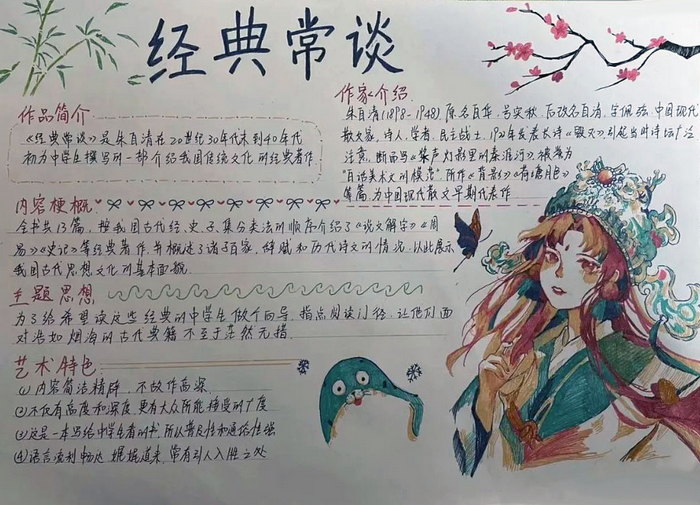 经典常谈
作品简介
《经典常谈》是朱自清在20世纪30年代末到40年代
初为中学生撰写的一部介绍我国传统文化的经典著作
作家介绍
朱自清(1898-1948)原名自华,号实秋,后改名自清,字佩弦,中国现代
散文家,诗人,学者,民主战士,1921年发表长诗《毁灭》,引起当时诗坛广泛
注意,断而写《桨声灯影里的秦淮河》,被誉为
"白话美术文的模范"所作《背影》《荷塘月色》
等篇,为中国现代散文早期代表作
内容梗概:
全书共13篇,按我国古代经、史、子、集分类法的顺序介绍了《说文解字》《周
易》《史记》等经典著作,并概述了诸子百家,辞赋和历代诗文的情况,以此展示
我国古代思想文化的基本面貌
主题思想
为了给希望读这些经典的中学生做个向导,指点阅读门径,让他们面
对浩如烟海的古代典籍不至于茫然无措
艺术特色
(1)内容简洁精辟,不故作高深
(2)不仅有高度和深度,更有大众所能接受的广度
(3)这是一本写给中学生看的书,所以普及性和通俗性强
(4)语言流利畅达,娓娓道来,常有引人入胜之处